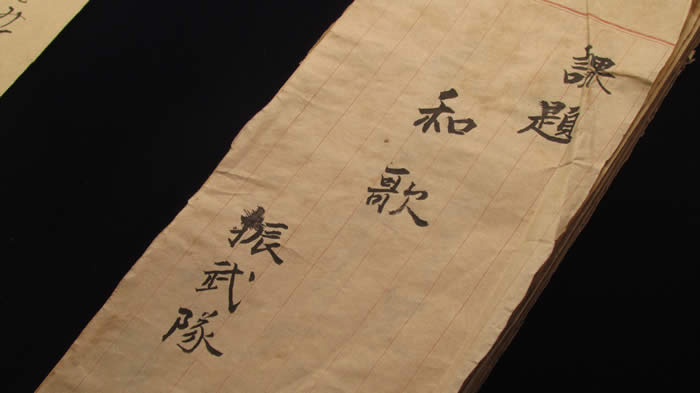 課題
和歌
振武隊